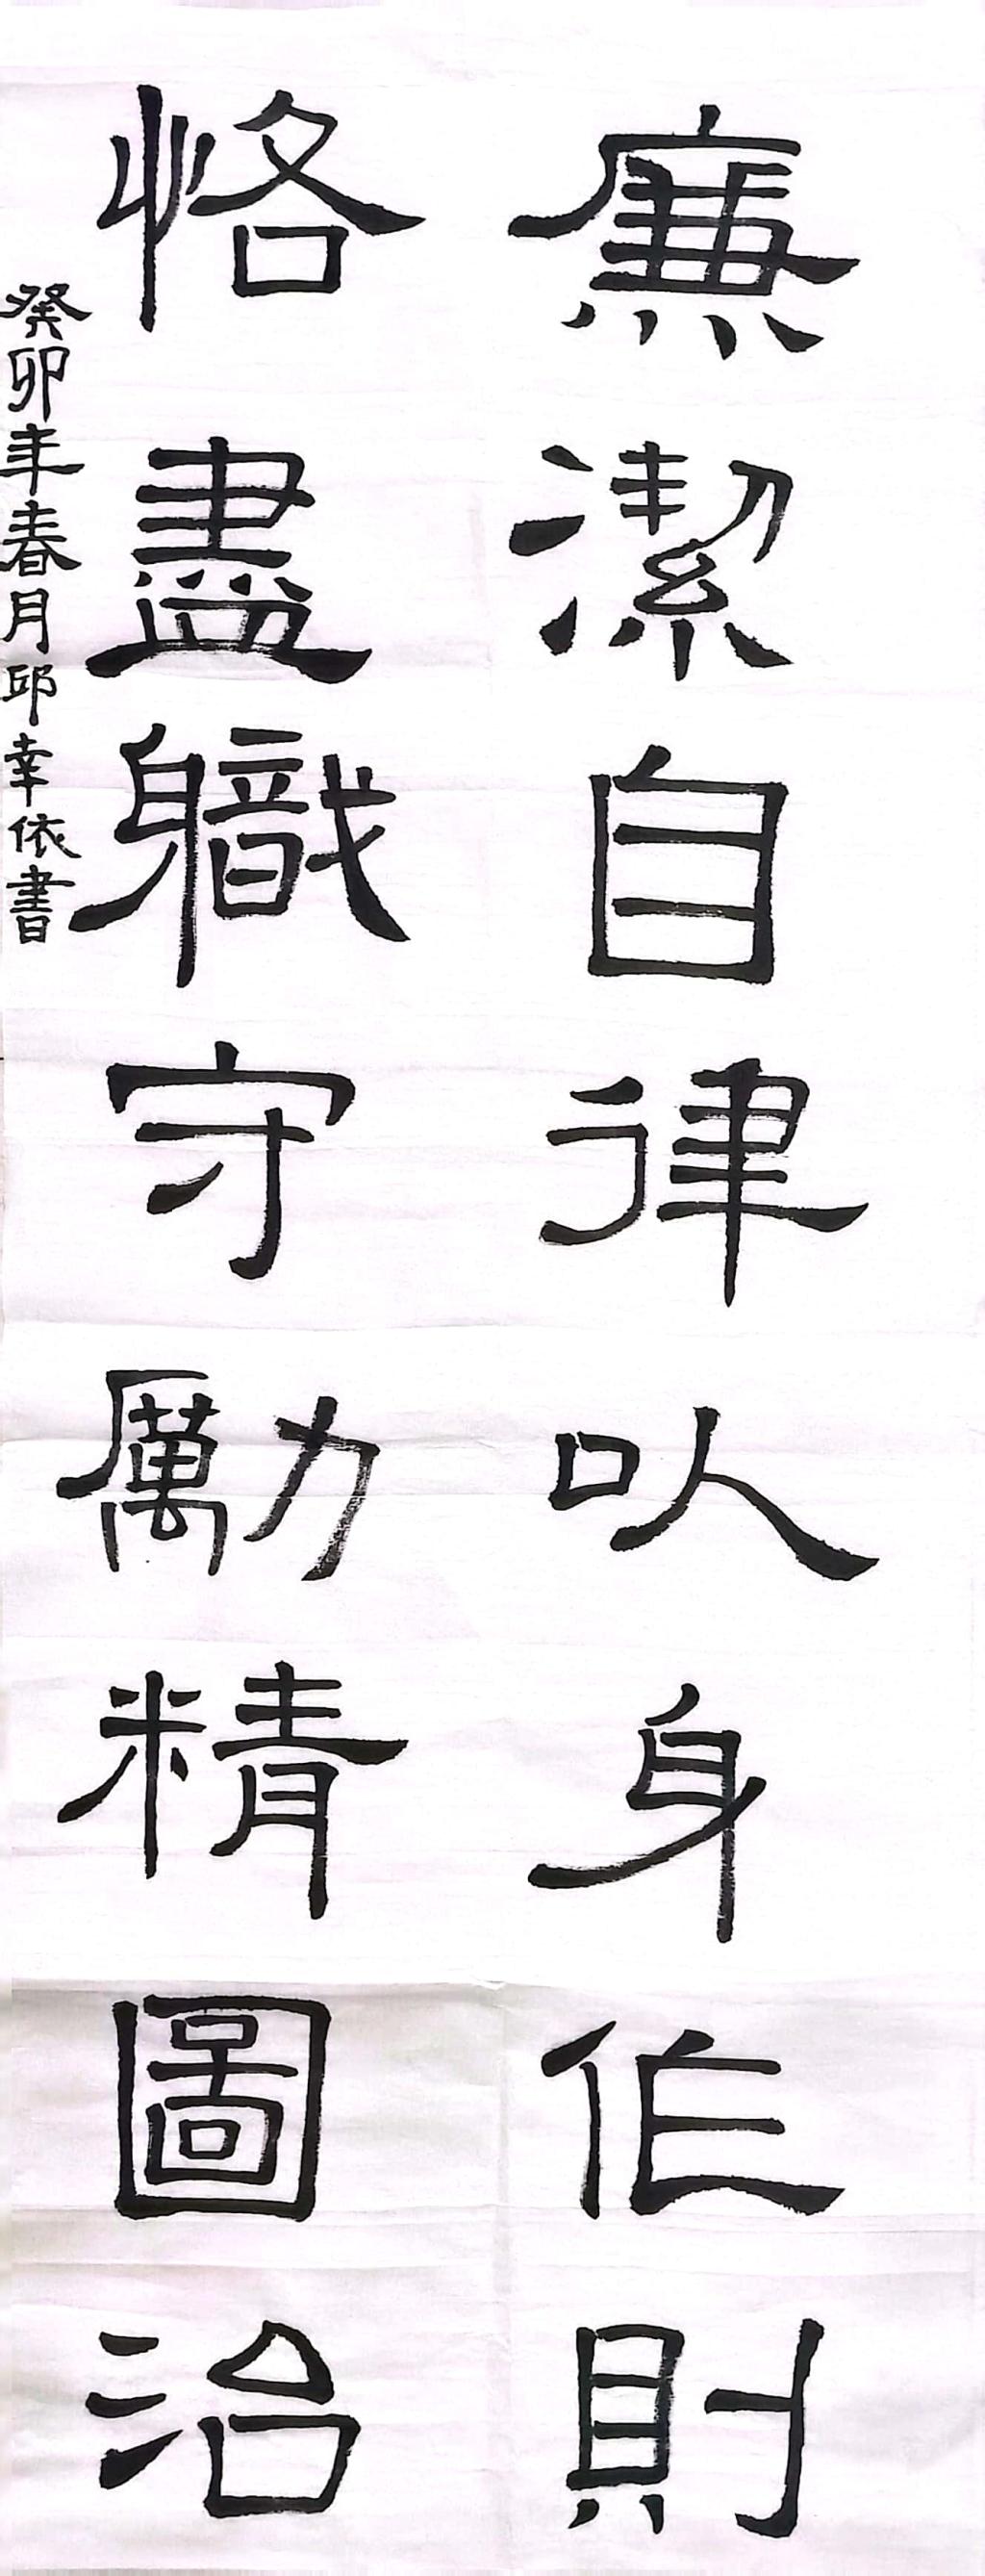 廉潔自律以身作則
恪盡職守勵精圖治
癸卯年春月邱幸依書